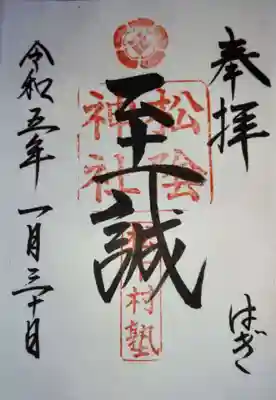 奉拝
はぎ
至誠
松陰
神社
松下村塾
令和五年一月三十日